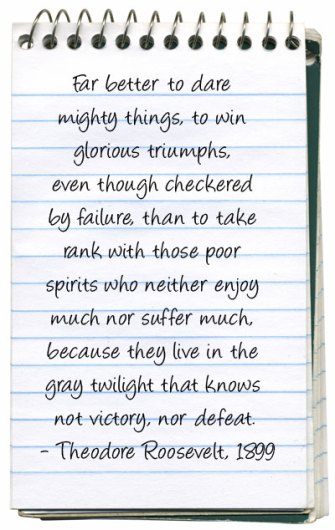 Far better to dare
mighty things, to win
glorious triumphs,
even though checkered
by failure, than to take
rank with those poor
spirits who neither enjoy
much nor suffer much,
because they live in the
gray twilight that knows
not victory, nor defeat.
- Theodore Roosevelt, 1899